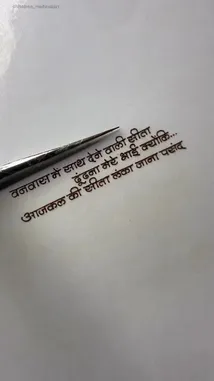 वनवास मे साथ देने वाली सीता
ढूंढना मेरे भाई क्योकि...
आजकल की सीता लंका जाना पसंद